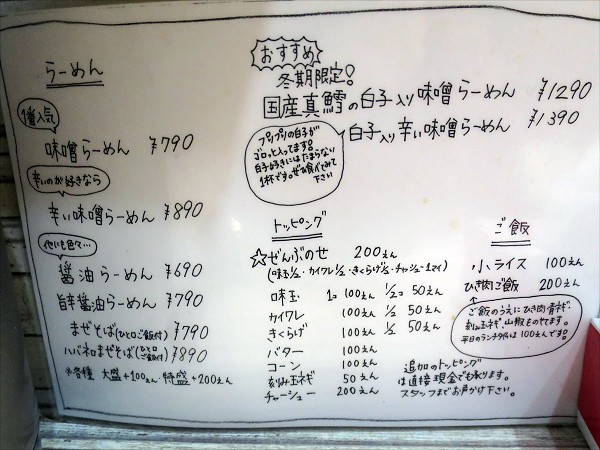 らーめん
1番人気
味噌らーめん ¥790
辛いのが好きなら
辛い味噌らーめん ¥890
他にも色々…
醤油らーめん ¥690
旨辛醤油らーめん ¥790
まぜそば(ひと口ご飯付) ¥790
ハバネロまぜそば(ひと口ご飯付) ¥890
※各種 大盛+100えん 特盛+200えん
おすすめ
冬期限定!
国産真鱈の白子入り味噌らーめん ¥1290
白子入り辛い味噌らーめん ¥1390
プリプリの白子が
ゴロッと入ってます!
白子好きにはたまらない
1杯です。ぜひ食べてみて
下さい
トッピング
☆ぜんぶのせ 200えん
(味玉1/2・カイワレ1/2・きくらげ1/2・チャーシュー1マイ)
味玉 1コ 100えん 1/2コ 50えん
カイワレ 100えん 1/2 50えん
きくらげ 100えん 1/2 50えん
バター 100えん
コーン 100えん
刻み玉ネギ 50えん
チャーシュー 200えん
ご飯
小ライス 100えん
ひき肉ご飯 200えん
ご飯のうえにひき肉・青ネギ、
刻み玉ネギ、山椒をのせてます。
平日のランチタイムは100えんです!
追加のトッピング
は直接現金でも承ります。
スタッフまでお声かけ下さい。